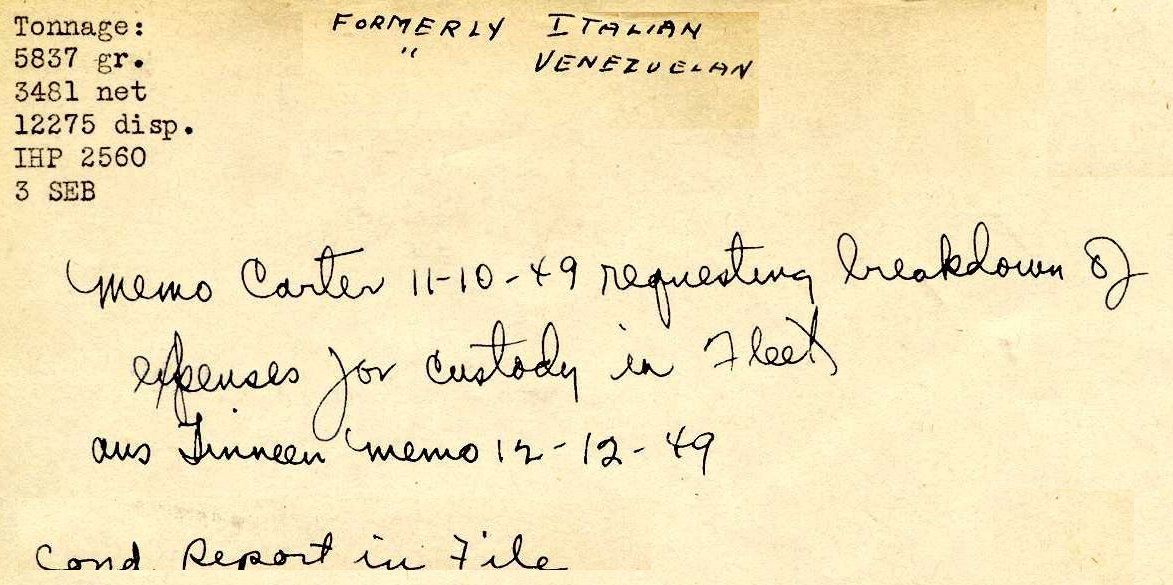 Tonnage:
5837 gr.
3481 net
12275 disp.
IHP 2560
3 SEB
FORMERLY ITALIAN
" VENEZUELAN
Memo Carter 11-10-49 requesting breakdown of
expenses for custody in Fleet
ans Finneen memo 12-12-49
Cond. Report in File